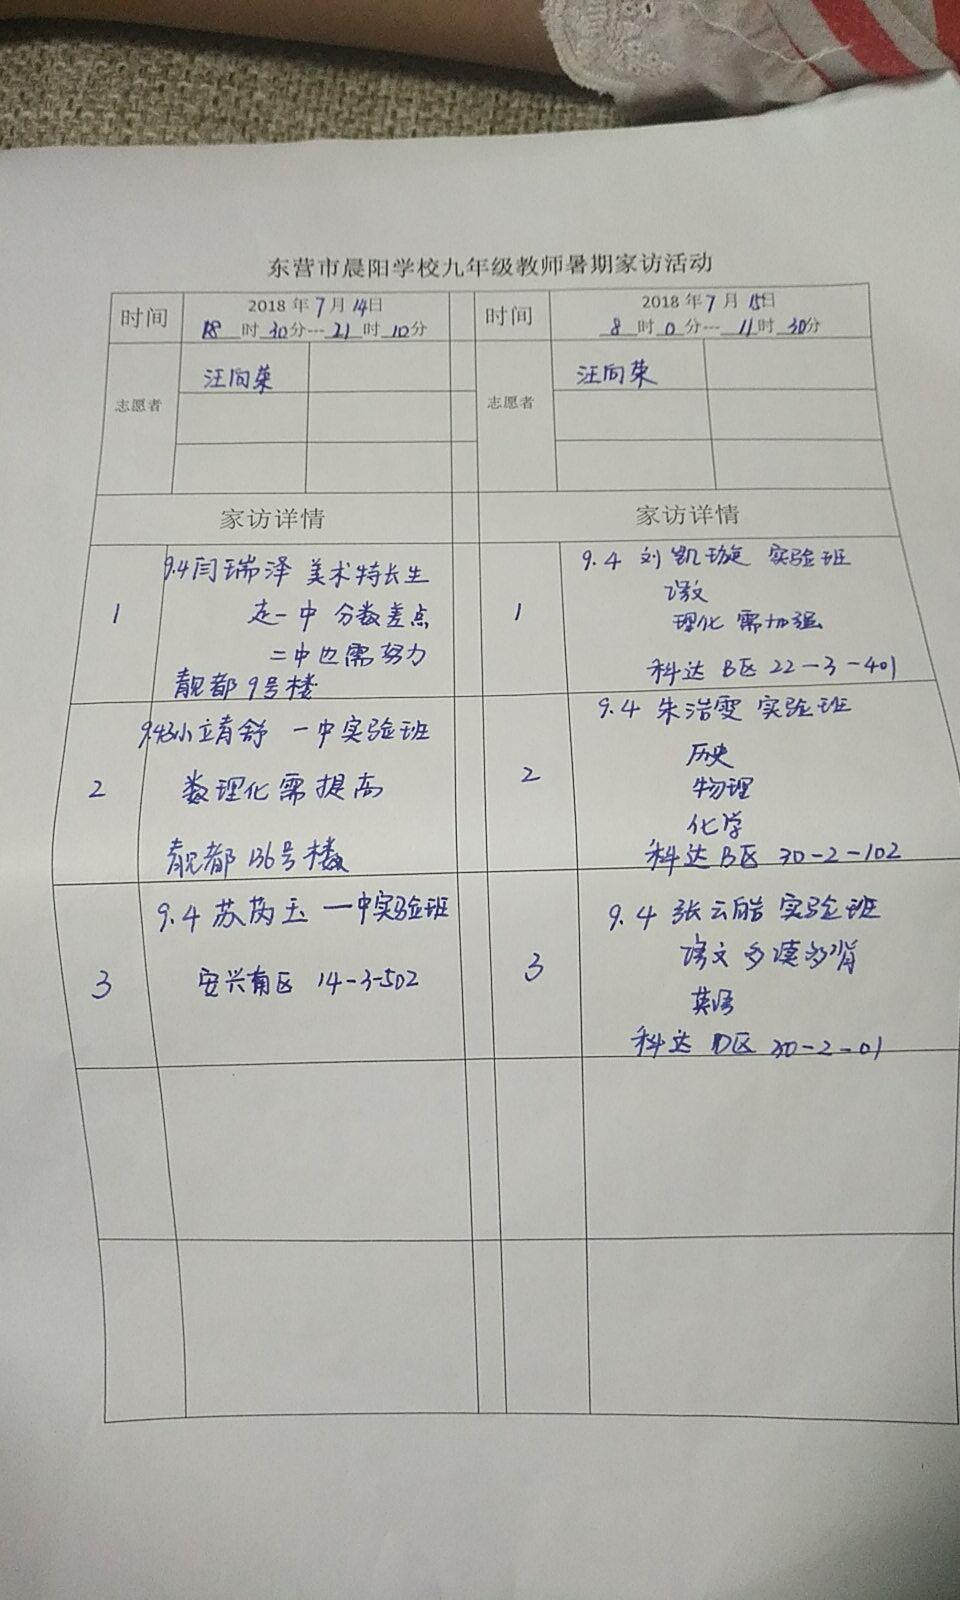 东营市晨阳学校九年级教师暑期家访活动
时间
2018 年 7 月 14日
18 时 30分---21 时 10分
志愿者
汪向荣
家访详情
1
9.4闫瑞泽 美术特长生
走一中 分数差点
二中也需努力
靓都 9号楼
2
9.4 一中实验班
数理化需提高
靓都 136号楼
3
9.4 苏芮玉 一中实验班
安兴南区 14-3-502
时间
2018 年 7 月 15日
8 时 0 分--- 11时 30分
志愿者
汪向荣
家访详情
1
9.4 刘凯璇 实验班
语文
理化 需加强
科达 B区 22-3-401
2
9.4 朱浩雯 实验班
历史
物理
化学
科达 B区 30-2-102
3
9.4 张云皓 实验班
语文 多读多背
英语
科达 D区 30-2-01